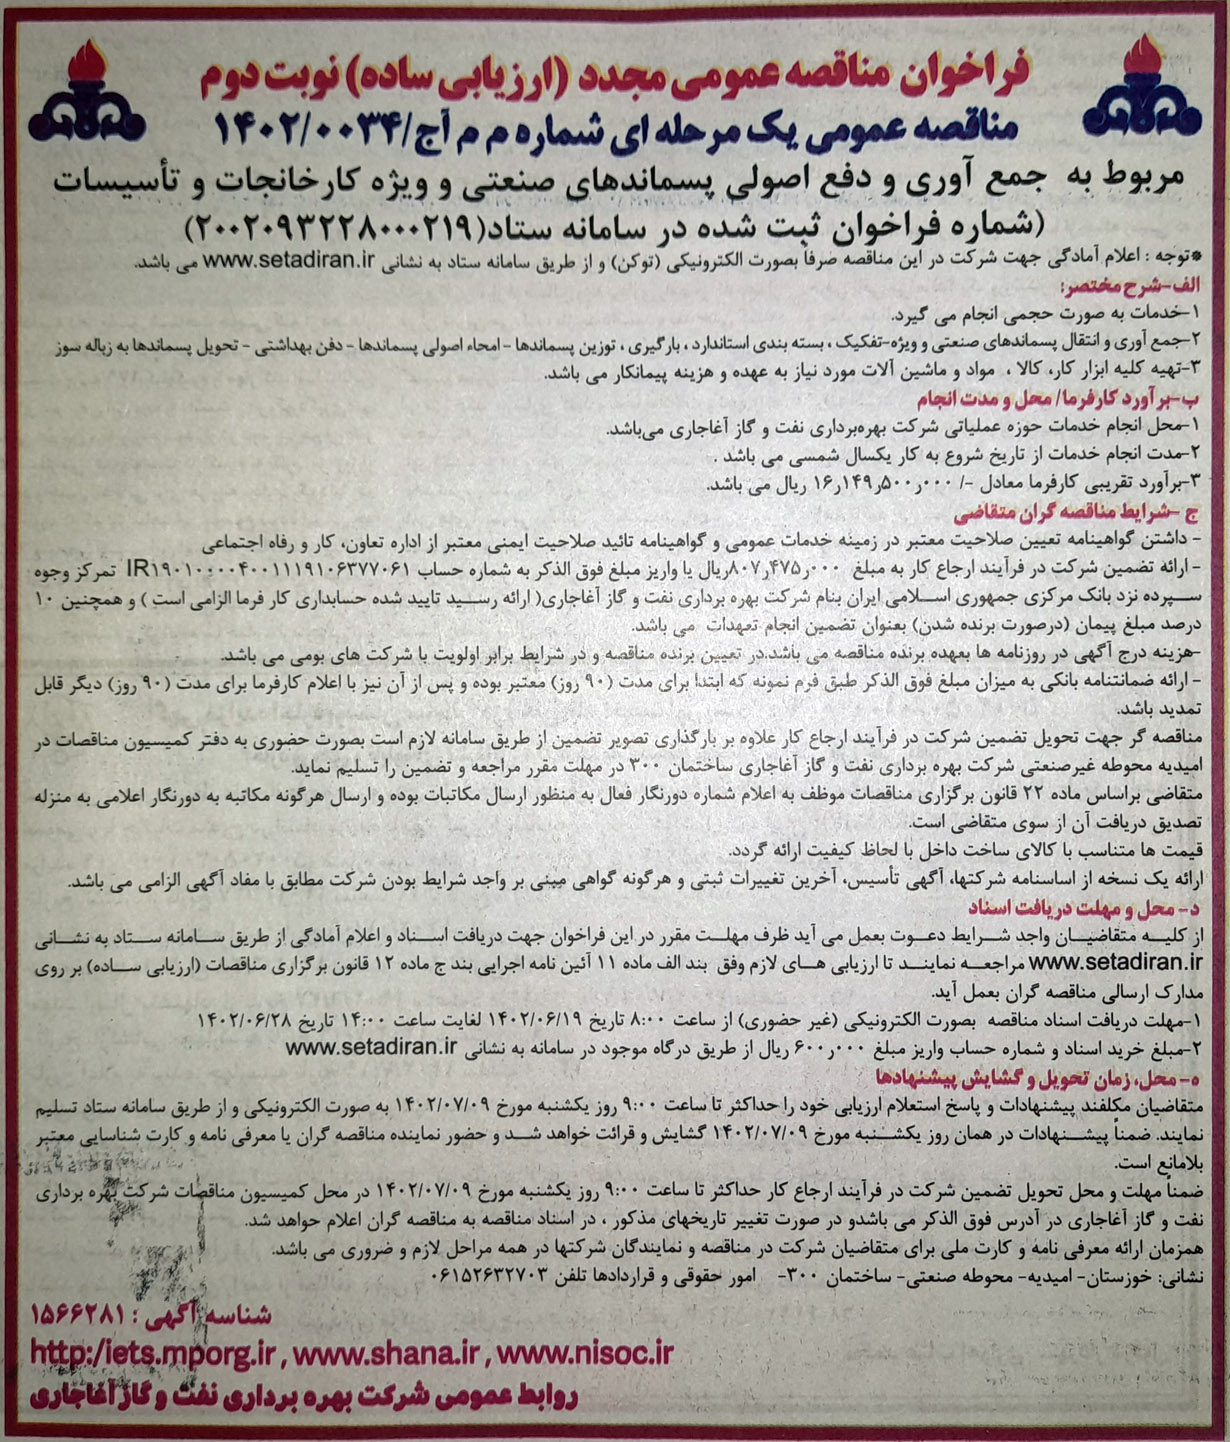 فراخوان مناقصه عمومی مجدد (ارزیابی ساده) نوبت دوم
مناقصه عمومی یک مرحله ای شماره م م آج/۱۴۰۲/۰۰۳۴
مربوط به جمع آوری و دفع اصولی پسماندهای صنعتی و ویژه کارخانجات و تأسیسات
(شماره فراخوان ثبت شده در سامانه ستاد(۲۰۰۲۰۹۳۲۲۸۰۰۰۲۱۹)
*توجه : اعلام آمادگی جهت شرکت در این مناقصه صرفاً بصورت الکترونیکی (توکن) و از طریق سامانه ستاد به نشانی www.setadiran.ir می باشد.
الف-شرح مختصر:
۱-خدمات به صورت حجمی انجام می گیرد.
۲-جمع آوری و انتقال پسماندهای صنعتی و ویژه-تفکیک ، بسته بندی استاندارد ، بارگیری ، توزین پسماندها - امحاء اصولی پسماندها - دفن بهداشتی - تحویل پسماندها به زباله سوز
۳-تهیه کلیه ابزار کار، کالا ، مواد و ماشین آلات مورد نیاز به عهده و هزینه پیمانکار می باشد.
ب-برآورد کارفرما/ محل و مدت انجام
۱-محل انجام خدمات حوزه عملیاتی شرکت بهره‌برداری نفت و گاز آغاجاری می‌باشد.
۲-مدت انجام خدمات از تاریخ شروع به کار یکسال شمسی می باشد .
۳-برآورد تقریبی کارفرما معادل -/ ۱۶ر۱۴۹ر۵۰۰ر۰۰۰ ریال می باشد.
ج -شرایط مناقصه گران متقاضی
- داشتن گواهینامه تعیین صلاحیت معتبر در زمینه خدمات عمومی و گواهینامه تائید صلاحیت ایمنی معتبر از اداره تعاون، کار و رفاه اجتماعی
- ارائه تضمین شرکت در فرآیند ارجاع کار به مبلغ ۸۰۷ر۴۷۵ر۰۰۰ریال یا واریز مبلغ فوق الذکر به شماره حساب IR۱۹۰۱۰۰۰۰۴۰۰۱۱۱۹۱۰۶۳۷۷۰۶۱ تمرکز وجوه
سپرده نزد بانک مرکزی جمهوری اسلامی ایران بنام شرکت بهره برداری نفت و گاز آغاجاری( ارائه رسید تایید شده حسابداری کار فرما الزامی است ) و همچنین ۱۰
درصد مبلغ پیمان (درصورت برنده شدن) بعنوان تضمین انجام تعهدات می باشد.
-هزینه درج آگهی در روزنامه ها بعهده برنده مناقصه می باشد.در تعیین برنده مناقصه و در شرایط برابر اولویت با شرکت های بومی می باشد.
- ارائه ضمانتنامه بانکی به میزان مبلغ فوق الذکر طبق فرم نمونه که ابتدا برای مدت (۹۰ روز) معتبر بوده و پس از آن نیز با اعلام کارفرما برای مدت (۹۰ روز) دیگر قابل
تمدید باشد.
مناقصه گر جهت تحویل تضمین شرکت در فرآیند ارجاع کار علاوه بر بارگذاری تصویر تضمین از طریق سامانه لازم است بصورت حضوری به دفتر کمیسیون مناقصات در
امیدیه محوطه غیرصنعتی شرکت بهره برداری نفت و گاز آغاجاری ساختمان ۳۰۰ در مهلت مقرر مراجعه و تضمین را تسلیم نماید.
متقاضی براساس ماده ۲۲ قانون برگزاری مناقصات موظف به اعلام شماره دورنگار فعال به منظور ارسال مکاتبات بوده و ارسال هرگونه مکاتبه به دورنگار اعلامی به منزله
تصدیق دریافت آن از سوی متقاضی است.
قیمت ها متناسب با کالای ساخت داخل با لحاظ کیفیت ارائه گردد.
ارائه یک نسخه از اساسنامه شرکتها، آگهی تأسیس، آخرین تغییرات ثبتی و هرگونه گواهی مبنی بر واجد شرایط بودن شرکت مطابق با مفاد آگهی الزامی می باشد.
د- محل و مهلت دریافت اسناد
از کلیه متقاضیان واجد شرایط دعوت بعمل می آید ظرف مهلت مقرر در این فراخوان جهت دریافت اسناد و اعلام آمادگی از طریق سامانه ستاد به نشانی
www.setadiran.ir مراجعه نمایند تا ارزیابی های لازم وفق بند الف ماده ۱۱ آئین نامه اجرایی بند ج ماده ۱۲ قانون برگزاری مناقصات (ارزیابی ساده) بر روی
مدارک ارسالی مناقصه گران بعمل آید.
۱-مهلت دریافت اسناد مناقصه بصورت الکترونیکی (غیر حضوری) از ساعت ۸:۰۰ تاریخ ۱۴۰۲/۰۶/۱۹ لغایت ساعت ۱۴:۰۰ تاریخ ۱۴۰۲/۰۶/۲۸
۲-مبلغ خرید اسناد و شماره حساب واریز مبلغ ۶۰۰ر۰۰۰ ریال از طریق درگاه موجود در سامانه به نشانی www.setadiran.ir
ه- محل، زمان تحویل و گشایش پیشنهادها
متقاضیان مکلفند پیشنهادات و پاسخ استعلام ارزیابی خود را حداکثر تا ساعت ۹:۰۰ روز یکشنبه مورخ ۱۴۰۲/۰۷/۰۹ به صورت الکترونیکی و از طریق سامانه ستاد تسلیم
نمایند. ضمناً پیشنهادات در همان روز یکشنبه مورخ ۱۴۰۲/۰۷/۰۹ گشایش و قرائت خواهد شد و حضور نماینده مناقصه گران با معرفی نامه و کارت شناسایی معتبر
بلامانع است.
ضمناً مهلت و محل تحویل تضمین شرکت در فرآیند ارجاع کار حداکثر تا ساعت ۹:۰۰ روز یکشنبه مورخ ۱۴۰۲/۰۷/۰۹ در محل کمیسیون مناقصات شرکت بهره برداری
نفت و گاز آغاجاری در آدرس فوق الذکر می باشدو در صورت تغییر تاریخهای مذکور ، در اسناد مناقصه به مناقصه گران اعلام خواهد شد.
همزمان ارائه معرفی نامه و کارت ملی برای متقاضیان شرکت در مناقصه و نمایندگان شرکتها در همه مراحل لازم و ضروری می باشد.
نشانی: خوزستان- امیدیه- محوطه صنعتی- ساختمان ۳۰۰- امور حقوقی و قراردادها تلفن ۰۶۱۵۲۶۳۲۷۰۳
شناسه آگهی : ۱۵۶۶۲۸۱
http:/iets.mporg.ir , www.shana.ir , www.nisoc.ir
روابط عمومی شرکت بهره برداری نفت و گاز آغاجاری